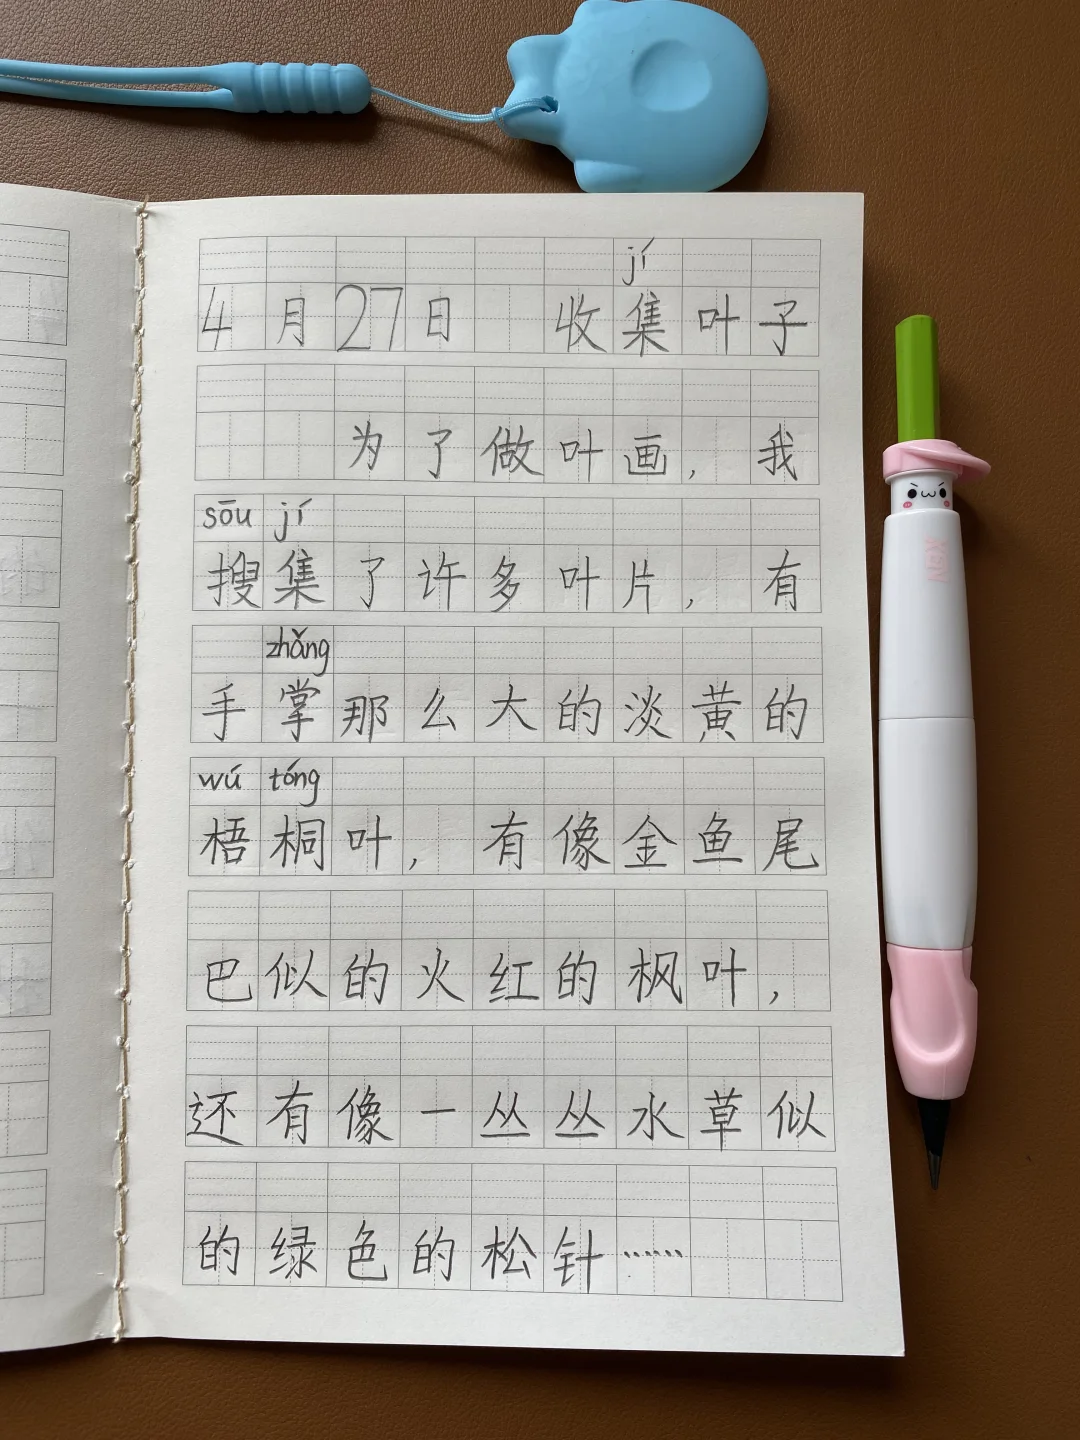 jí
4月27日 收集叶子
为了做叶画，我
sōu jí
搜集了许多叶片，有
zhǎng
手掌那么大的淡黄的
wú tóng
梧桐叶，有像金鱼尾
巴似的火红的枫叶，
还有像一丛丛水草似
的绿色的松针……